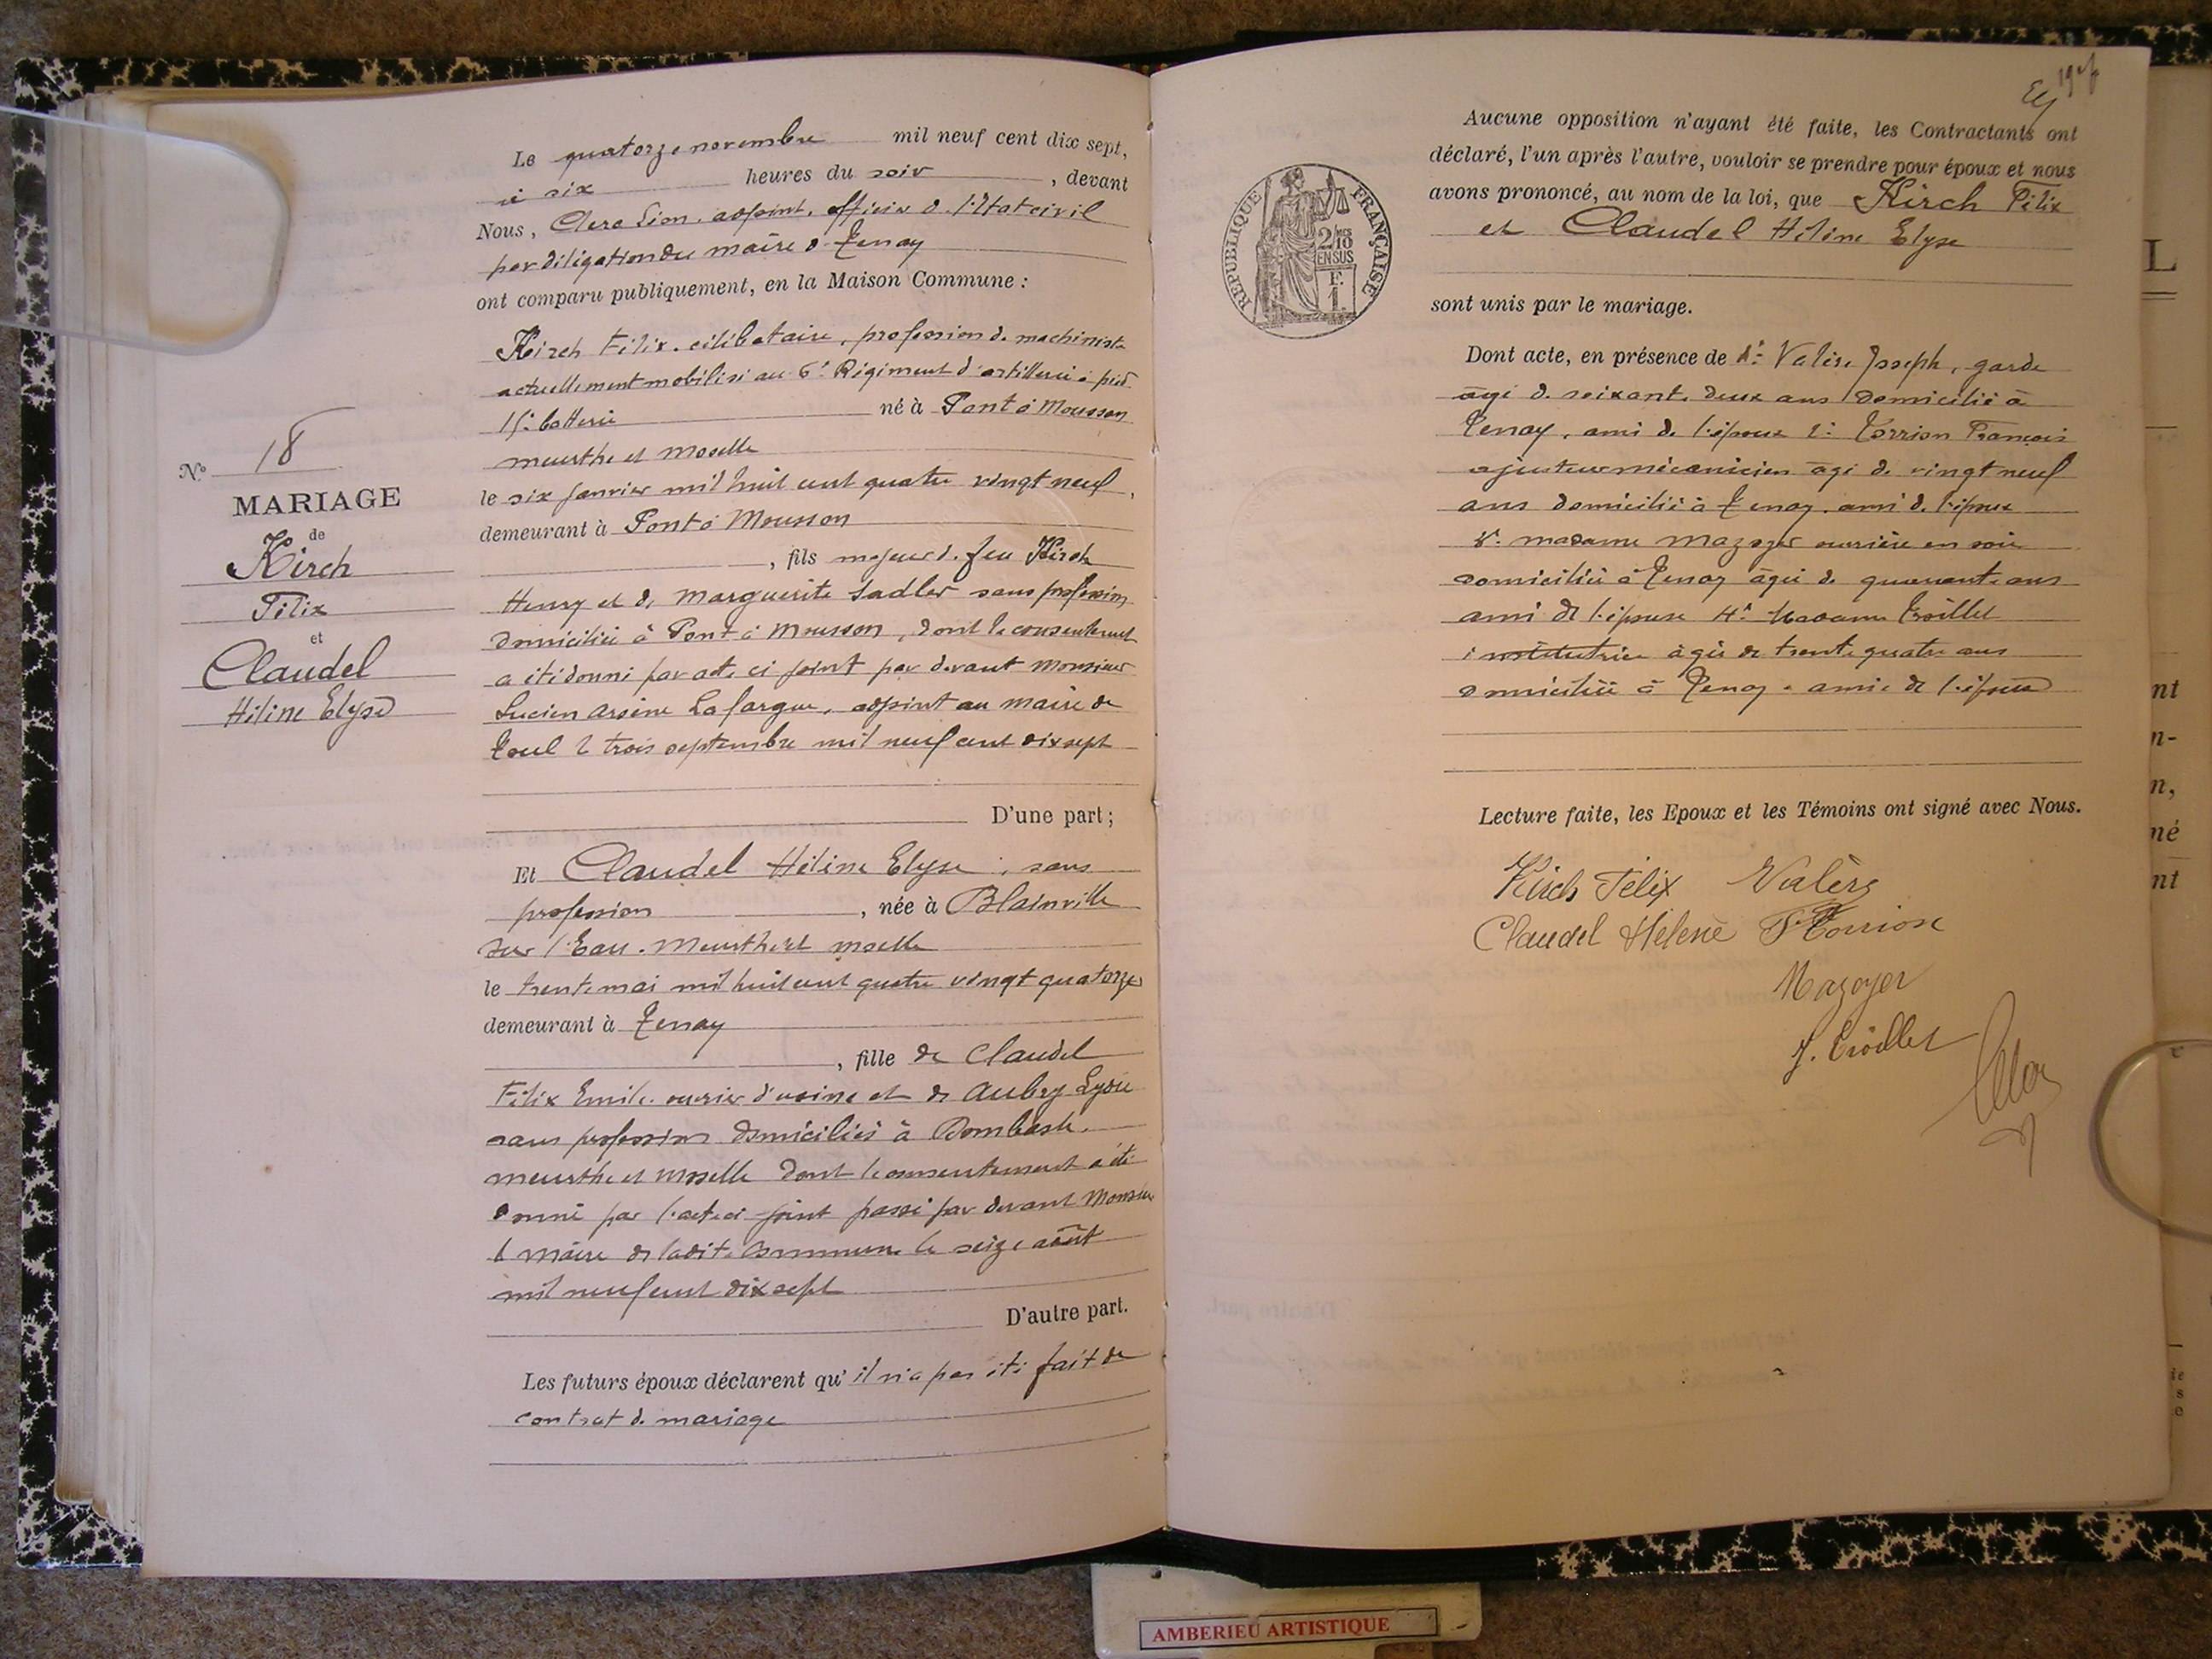 Le quatorze novembre mil neuf cent dix sept,
à six heures du soir, devant
Nous, Clerc Léon, adjoint, officier de l'Etat civil
par délégation du maire de Tenay
ont comparu publiquement, en la Maison Commune :
Kirch Félix, célibataire, profession de machiniste
actuellement mobilisé au 6e Régiment d'artillerie à pied
15e batterie né à Pont à Mousson
meurthe et moselle
le six janvier mil huit cent quatre vingt neuf,
demeurant à Pont à Mousson
, fils majeur de feu Kirch
Henry et de Marguerite Sadler sans profession
domiciliée à Pont à Mousson, dont le consentement
a été donné par acte ci joint par devant Monsieur
Lucien Arsène Lafargue, adjoint au maire de
Toul le trois septembre mil neuf cent dix sept
D'une part;
N° 18
MARIAGE
de
Kirch
Félix
et
Claudel
Hélène Elyse
Et Claudel Hélène Elyse, sans
profession, née à Blainville
sur l'Eau. Meurthe et moselle
le trente mai mil huit cent quatre vingt quatorze
demeurant à Tenay
, fille de Claudel
Félix Emile ouvrier d'usine et de Aubry Lydie
sans profession domiciliés à Dombasle.
meurthe et moselle dont le consentement a été
donné par l'acte ci joint passé par devant Monsieur
le maire de ladite commune le seize août
mil neuf cent dix sept
D'autre part.
Les futurs époux déclarent qu'il n'a pas été fait de
contrat de mariage
Aucune opposition n'ayant été faite, les Contractants ont
déclaré, l'un après l'autre, vouloir se prendre pour époux et nous
avons prononcé, au nom de la loi, que Kirch Félix
et Claudel Hélène Elyse
sont unis par le mariage.
REPUBLIQUE FRANÇAISE
2/10
EN SUS
F.
1.
Dont acte, en présence de 1° Valère Joseph, garde
âgé de soixante deux ans domicilié à
Tenay, ami de l'époux 2° Torrion François
ajusteur mécanicien âgé de vingt neuf
ans domicilié à Tenay. ami de l'époux
3° madame Mazoyer ouvrière en soie
domiciliée à Tenay âgée de quarante ans
amie de l'épouse 4° Madame Troillet
institutrice âgée de trente quatre ans
domiciliée à Tenay. amie de l'épouse
Lecture faite, les Epoux et les Témoins ont signé avec Nous.
Kirch Félix Valère
Claudel Hélène F Torrion
Mazoyer
J. Troillet
AMBERIEU ARTISTIQUE